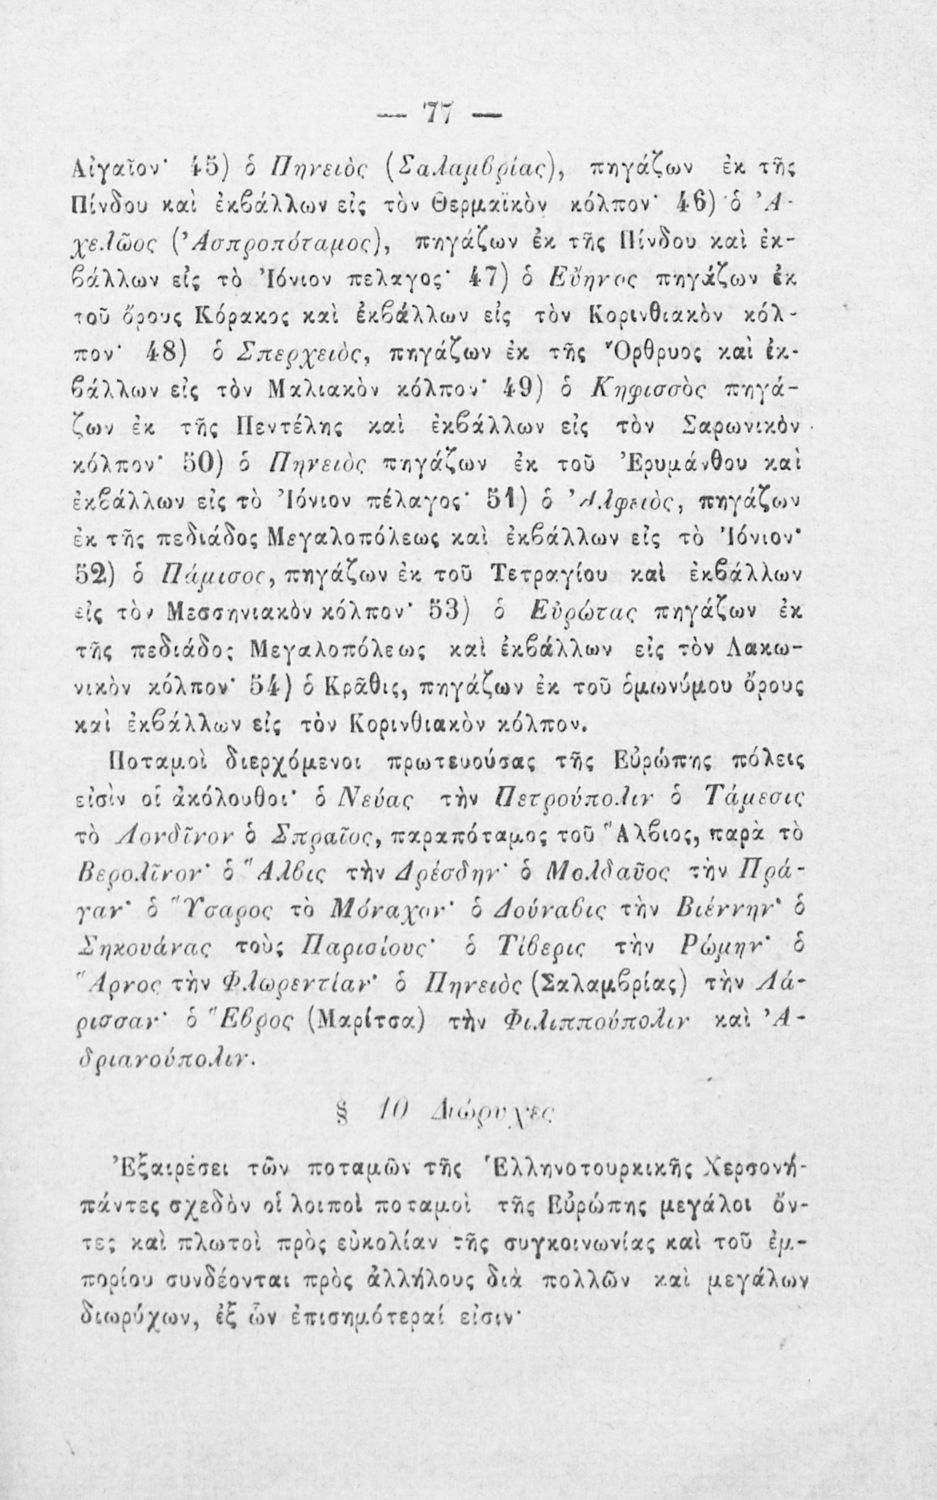 — 77 —
Αἰγαῖον· 45) ὁ Πηνειὸς (Σαλαμβρίας), πηγάζων ἐκ τῆς
Πίνδου καὶ ἐκβάλλων εἰς τὸν Θερμαϊκὸν κόλπον· 46) ὁ Ἀ-
χελῶος (Ἀσπροπόταμος), πηγάζων ἐκ τῆς Πίνδου καὶ ἐκ-
βάλλων εἰς τὸ Ἰόνιον πελαγος· 47) ὁ Εὔηνος πηγάζων ἐκ
τοῦ ὄρους Κόρακος καὶ ἐκβάλλων εἰς τὸν Κορινθιακὸν κόλ-
πον· 48) ὁ Σπερχειὸς, πηγάζων ἐκ τῆς Ὄρθρυος καὶ ἐκ-
βάλλων εἰς τὸν Μαλιακὸν κόλπον· 49) ὁ Κηφισσὸς πηγά-
ζων ἐκ τῆς Πεντέλης καὶ ἐκβάλλων εἰς τὸν Σαρωνικὸν
κόλπον· 50) ὁ Πηνειὸς πηγάζων ἐκ τοῦ Ἐρυμάνθου καὶ
ἐκβάλλων εἰς τὸ Ἰόνιον πέλαγος· 51) ὁ Ἀλφειὸς, πηγάζων
ἐκ τῆς πεδιάδος Μεγαλοπόλεως καὶ ἐκβάλλων εἰς τὸ Ἰόνιον·
52) ὁ Πάμισος, πηγάζων ἐκ τοῦ Τετραγίου καὶ ἐκβάλλων
εἰς τὸν Μεσσηνιακὸν κόλπον· 53) ὁ Εὐρώτας πηγάζων ἐκ
τῆς πεδιάδος Μεγαλοπόλεως καὶ ἐκβάλλων εἰς τὸν Λακω-
νικὸν κόλπον· 54) ὁ Κρᾶθις, πηγάζων ἐκ τοῦ ὁμωνύμου ὄρους
καὶ ἐκβάλλων εἰς τὸν Κορινθιακὸν κόλπον.
Ποταμοὶ διερχόμενοι πρωτευούσας τῆς Εὐρώπης πόλεις
εἰσὶν οἱ ἀκόλουθοι· ὁ Νεύας τὴν Πετρούπολιν ὁ Τάμεσις
τὸ Λονδῖνον ὁ Σπραῖος, παραπόταμος τοῦ Ἄλβιος, παρὰ τὸ
Βερολῖνον· ὁ Ἄλβις τὴν Δρέσδην· ὁ Μολδαῦος τὴν Πρά-
γαν· ὁ Ὕσαρος τὸ Μόναχον· ὁ Δούναβις τὴν Βιέννην· ὁ
Σηκουάνας τοὺς Παρισίους· ὁ Τίβερις τὴν Ρώμην· ὁ
Ἄρνος τὴν Φλωρεντίαν· ὁ Πηνειὸς (Σαλαμβρίας) τὴν Λά-
ρισσαν· ὁ Ἕβρος (Μαρίτσα) τὴν Φιλιππούπολιν καὶ Ἀ-
δριανούπολιν.
§ 10 Διώρυχες
Ἐξαιρέσει τῶν ποταμῶν τῆς Ἑλληνοτουρκικῆς Χερσονή-
πάντες σχεδὸν οἱ λοιποὶ ποταμοὶ τῆς Εὐρώπης μεγάλοι ὄν-
τες καὶ πλωτοὶ πρὸς εὐκολίαν τῆς συγκοινωνίας καὶ τοῦ ἐμ-
πορίου συνδέονται πρὸς ἀλλήλους διὰ πολλῶν καὶ μεγάλων
διωρύχων, ἐξ ὧν ἐπισημότεραί εἰσιν·